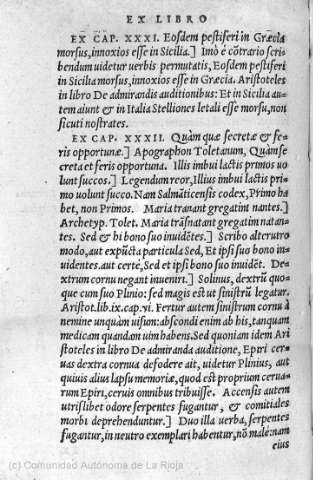 EX LIBRO
EX CAP. XXXI. Eosdem pestiferi in Græcia
morsus, innoxios esse in Sicilia.] Imò è cōtrario scri-
bendum uidetur uerbis permutatis, Eosdem pestiferi
in Sicilia morsus, innoxios esse in Græcia. Aristoteles
in libro De admirandis auditionibus: Et in Sicilia au-
tem aiunt & in Italia Stelliones letali esse morsu, non
sicuti nostrates.
EX CAP. XXXII. Quàm quæ secretæ & fe-
ris opportunæ.] Apographon Toletanum, Quàm se
creta et feris opportuna. Illis imbui lactis primos uo
lunt succos.] Legendum reor, Illius imbui lactis pri-
mo uolunt succo. Nam Salmāticensis codex, Primo ha
bet, non Primos. Maria tranant gregatim nantes.]
Archetyp. Tolet. Maria trāsnatant gregatim natan-
tes. Sed & hi bono suo inuidētes.] Scribo alterutro
modo, aut expūcta particula Sed, Et ipsi suo bono in-
uidentes. aut certè, Sed et ipsi bono suo inuidēt. De-
xtrum cornu negant inueniri.] Solinus, dextrū quo-
que cum suo Plinio: sed magis est ut sinistrū legatur.
Aristot. lib. ix. cap. vi. Fertur autem sinistrum cornu à
nemine unquàm uisum: abscondi enim ab his, tanquam
medicam quandam uim habens. Sed quoniam idem Ari
stoteles in libro De admiranda auditione, Epiri cer-
uas dextra cornua defodere ait, uidetur Plinius, aut
quiuis alius lapsu memoriæ, quod est proprium cerua-
rum Epiri, ceruis omnibus tribuisse. Accensis autem
utrislibet odore serpentes fugantur, & comitiales
morbi deprehenduntur.] Duo illa uerba, serpentes
fugantur, in neutro exemplari habentur, nō malè nam
eius
(c) Comunidad Autónoma de La Rioja